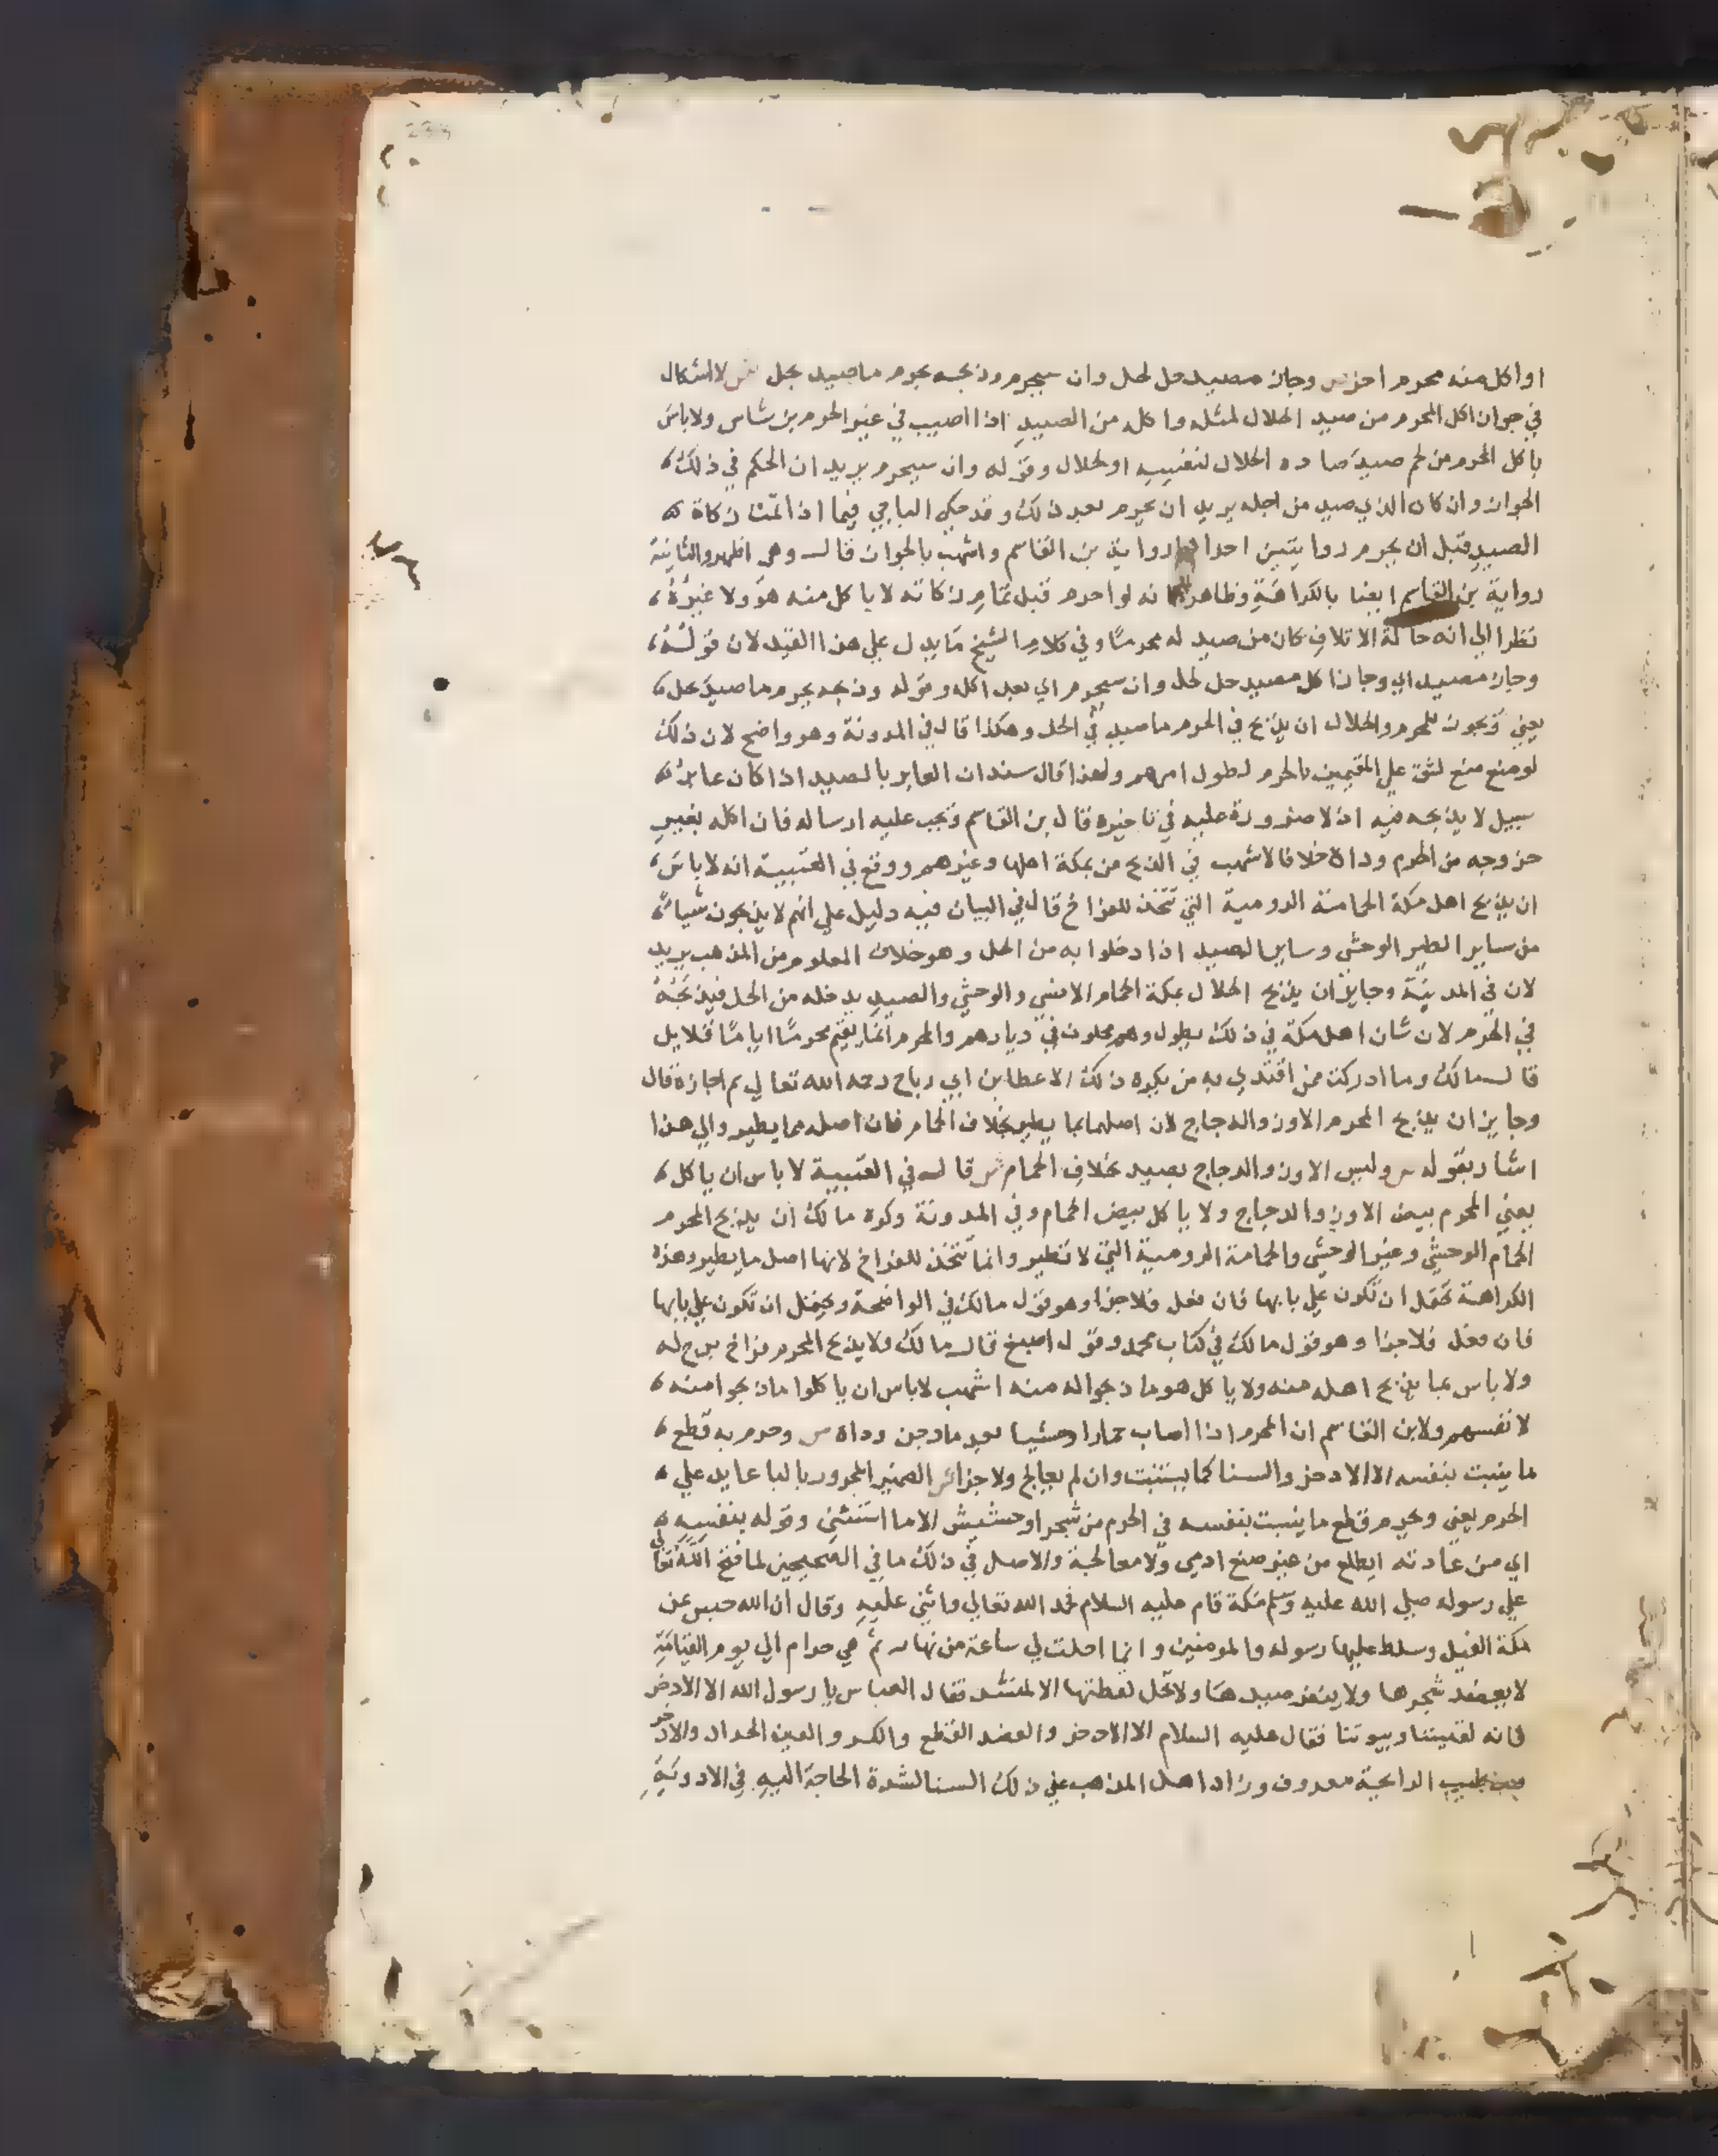 او اكل منه محرم اخر ص وجاز مصيد حل لحل وان سيحرم وذبحه بحرم ماصيد بحل ش لا اشكال
في جواز اكل المحرم من صيد الحلال لمثله واكله من الصييد اذا اصيب في غير الحرم بن شاس ولاباس
باكل المحرم من لحم صيد صاده الحلال لنفسه او لحلال وقوله وان سيحرم يريد ان الحكم في ذلك
الجواز وان كان الذي صيد من اجله يريد ان يحرم بعد ذلك وقد حكي الباجي فيما اذا تمت ذكاة
الصيد قبل ان يحرم روايتين احداهما رواية بن القاسم واشهب بالجواز قال وهي اظهر والثانية
رواية بن القاسم ايضا بالكراهة وظاهر انه لو احرم قبل تمام ذكاته لا ياكل منه هو ولا غيره
نظرا الي انه حالة الاتلاف كان من صيد له محرما وفي كلام الشيخ مايدل علي هذا القيد لان قوله
وجاز مصيد اي وجاز اكل مصيد حل لحل وان سيحرم اي بعد اكله وقوله وذبحه بحرم ماصيد بحل
يعني ويجوز للمحرم والحلال ان يذبح في الحرم ماصيد في الحل وهكذا قال في المدونة وهو واضح لان ذلك
لو منع منع لشق علي المقيمين بالحرم لطول امرهم ولهذا قال سند ان العابر بالصيد اذا كان عابر
سبيل لا يذبحه فيه اذ لا ضرورة عليه في تاخيره قال بن القاسم ويجب عليه ارساله فان اكله بغير
خروجه من الحرم وداه خلافا لاشهب في الذبح من بمكة اهلها وغيرهم ووقع في العتبية انه لاباس
ان يذبح اهل مكة الحمامة الرومية التي تتخذ للفراخ قال في البيان فيه دليل علي انهم لا يذبحون شيا
من ساير الطير الوحشي وساير الصيد اذا دخلوا به من الحل وهو خلاف المعلوم من المذهب يريد
لان في المدينة وجايز ان يذبح الحلال بمكة الحمام الانسي والوحشي والصيد يدخله من الحل فيذبحه
في الحرم لان شان اهل مكة في ذلك يطول وهم محلون في ديارهم والمحرم انما يقيم محرما اياما قلايل
قال مالك وما ادركت ممن اقتدي به من يكره ذلك الا عطا بن ابي رباح رحمه الله تعالي ثم اجازه قال
وجايز ان يذبح المحرم الاوز والدجاج لان اصلهما مما يطير بخلاف الحمام فان اصله مما يطير والي هذا
اشار بقوله ص وليس الاوز والدجاج بصيد بخلاف الحمام ش قال في العتبية لا باس ان ياكل
يعني المحرم بيض الاوز والدجاج ولا ياكل بيض الحمام وفي المدونة وكره مالك ان يذبح المحرم
الحمام الوحشي وغير الوحشي والحمامة الرومية التي لا تطير وانما تتخذ للفراخ لانها اصل مايطير وهذه
الكراهة تحتمل ان تكون علي بابها فان فعل فلا جزا وهو قول مالك في الواضحة ويحتمل ان تكون علي بابها
فان فعل فلا جزا وهو قول مالك في كتاب محمد وقول اصبغ قال مالك ولا يذبح المحرم فراخ برج له
ولا باس بما يذبح اهله منه ولا ياكل هو ما ذبحوا له منه اشهب لاباس ان ياكلوا ماذبحوا منه
لانفسهم ولابن القاسم ان المحرم اذا اصاب حمارا وحشيا بعد مادجن وداه ص وحرم به قطع
ما ينبت بنفسه الا الاذخر والسنا كما يستنبت وان لم يعالج ولا جزا ش الضمير المجرور بالبا عايد علي
الحرم يعني ويحرم قطع ماينبت بنفسه في الحرم من شجر او حشيش الا ما استثني وقوله بنفسه
اي من عادته ايطلع من غير صنع ادمي ولا معالجة والاصل في ذلك مافي الصحيحين لما فتح الله تعالي
علي رسوله صلي الله عليه وسلم مكة قام عليه السلام فحمد الله تعالي واثني عليه وقال ان الله حبس عن
مكة الفيل وسلط عليها رسوله والمومنين وانما احلت لي ساعة من نهار ثم هي حرام الي يوم القيامة
لا يعضد شجرها ولا ينفر صيدها ولا تحل لقطتها الا لمنشد فقال العباس يا رسول الله الا الاذخر
فانه لقيننا وبيوتنا فقال عليه السلام الا الاذخر والعضد القطع والكسر والقين الحداد والاذخر
طيب الرايحة معروف وزاد اهل المذهب علي ذلك السنا لشدة الحاجة اليه في الادوية